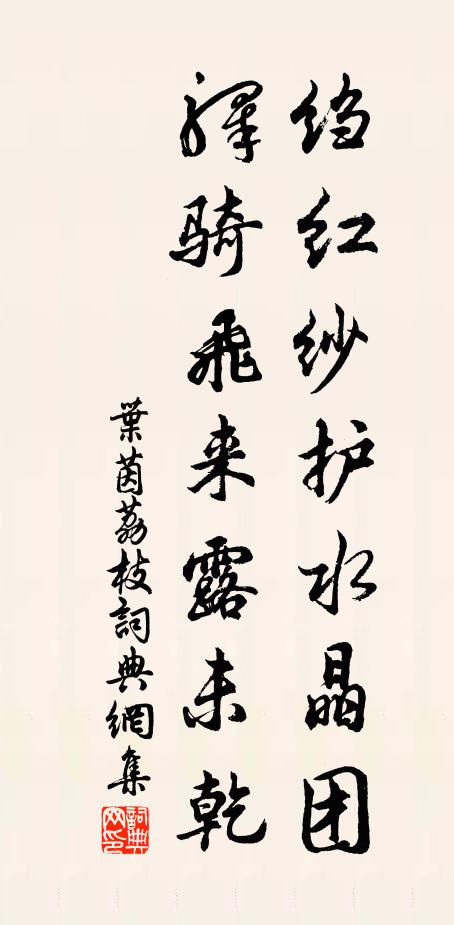 绉红纱护水晶团
驛骑飛来露未乾
葉茵荔枝詞典網集
詞典网印